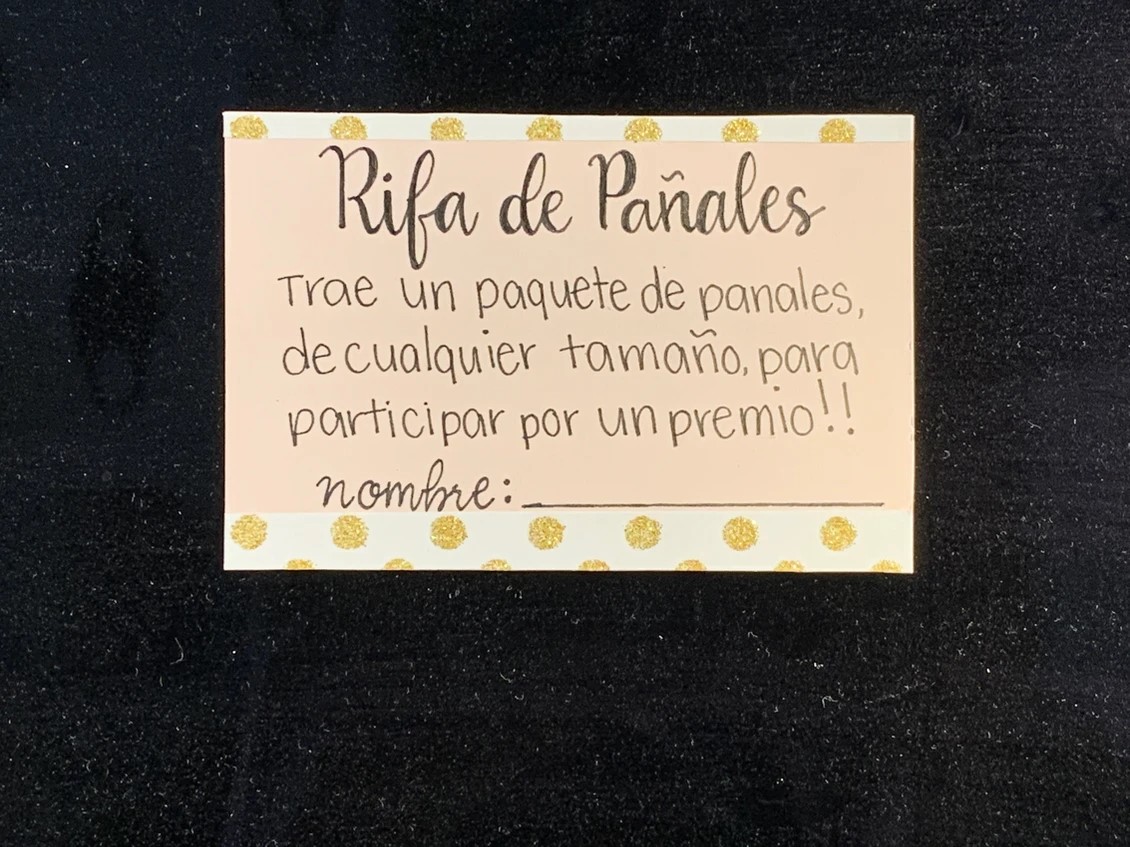 Rifa de Pañales
Trae un paquete de panales,
de cualquier tamaño, para
participar por un premio!!
nombre: